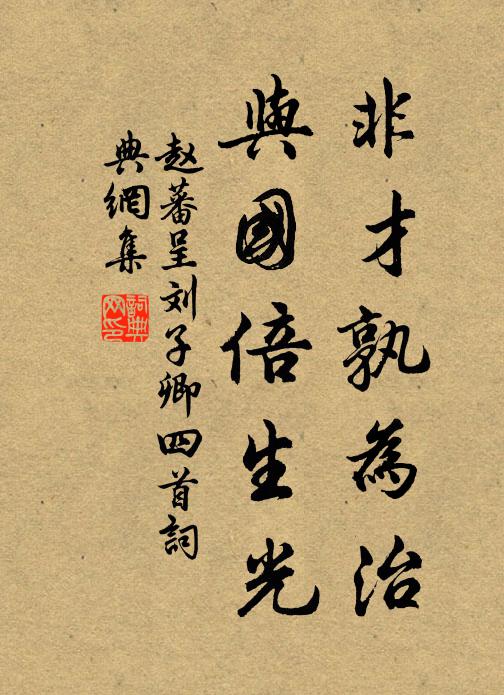 非才孰為治
與國倍生光
赵蕃呈刘子卿四首詞
典網集
詞典
网印